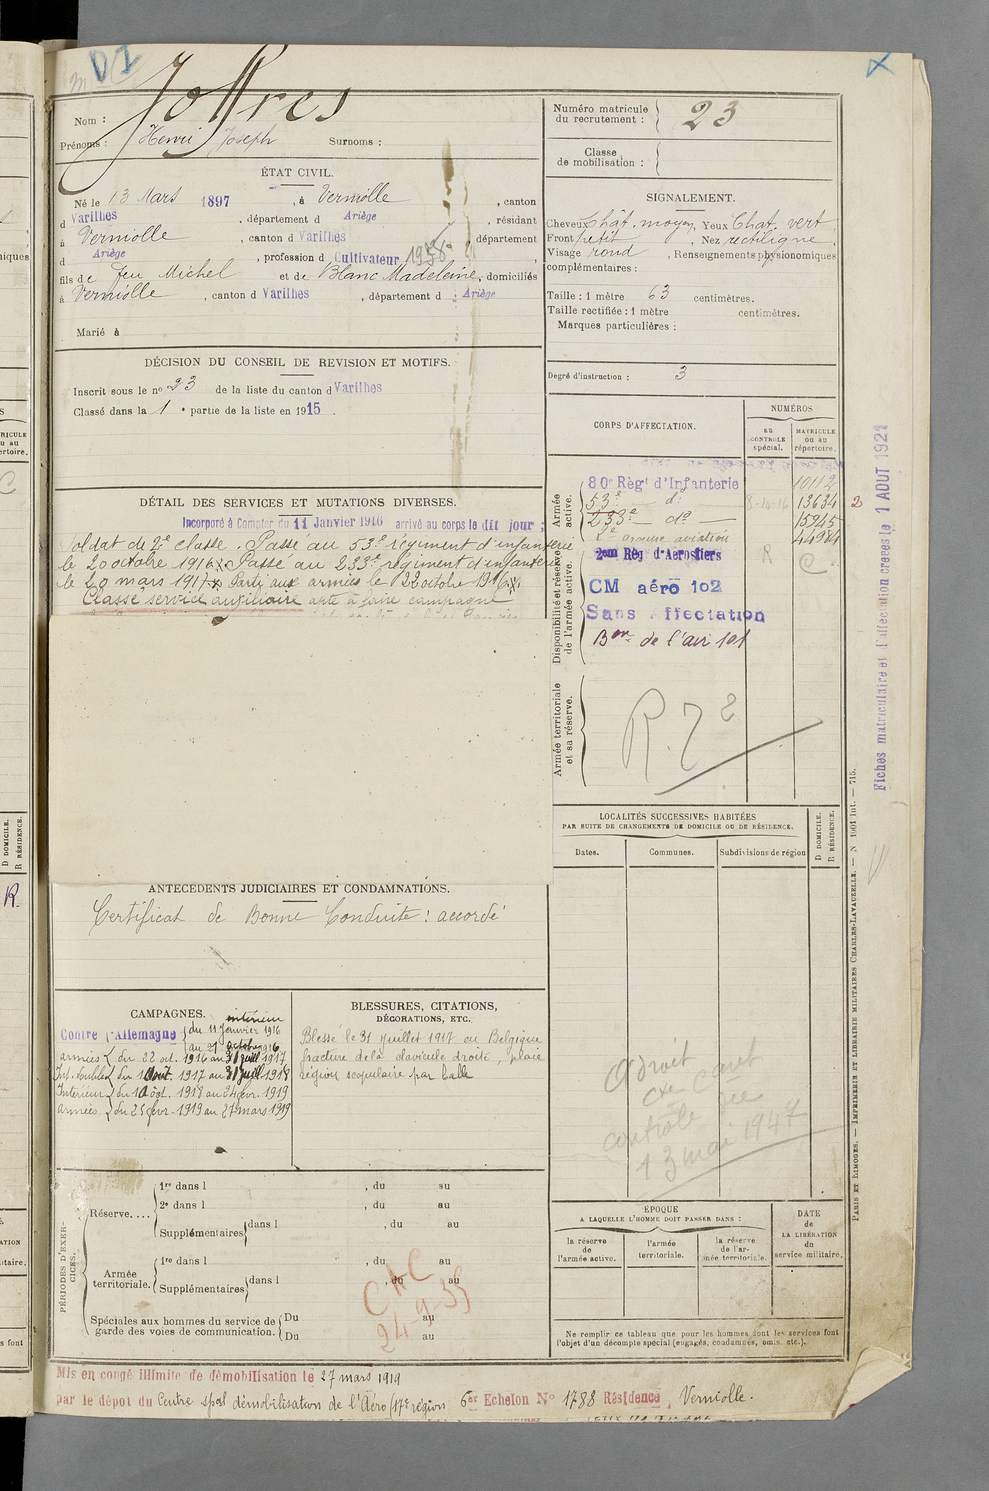 D1
Joffres
Nom :
Prénoms : Henri Joseph Surnoms :
ÉTAT CIVIL.
Né le 13 Mars 1897, à Verniolle, canton
d Varilhes, département d Ariège, résidant
à Verniolle, canton d Varilhes, département
d Ariège, profession d Cultivateur
fils de feu Michel et de Blanc Madeleine, domiciliés
à Verniolle, canton d Varilhes, département d Ariège
Marié à
DÉCISION DU CONSEIL DE REVISION ET MOTIFS.
Inscrit sous le nº 23 de la liste du canton d Varilhes
Classé dans la 1e partie de la liste en 1915.
DÉTAIL DES SERVICES ET MUTATIONS DIVERSES.
Incorporé à Compter du 11 Janvier 1916 arrivé au corps le dit jour ;
Soldat de 2e classe. Passé au 53e régiment d'infanterie
le 20 octobre 1916 x Passé au 233e régiment d'infanterie
le 20 mars 1917 x Parti aux armées le 22 octobre 1916 x
Classé service auxiliaire apte à faire campagne
ANTÉCÉDENTS JUDICIAIRES ET CONDAMNATIONS.
Certificat de Bonne Conduite : accordé
CAMPAGNES.
intérieur
Contre l'Allemagne { du 11 Janvier 1916
au 21 octobre 1916
armées { du 22 oct. 1916 au 31 juill. 1917
Int. double { du 1 août 1917 au 31 juill. 1918
Intérieur { du 1 août 1918 au 24 fevr. 1919
Armées { du 25 fevr. 1919 au 27 mars 1919
BLESSURES, CITATIONS,
DÉCORATIONS, ETC.
Blessé le 31 juillet 1917 en Belgique
fracture de la clavicule droite, plaie
région scapulaire par balle
PÉRIODES D'EXERCICES.
Réserve....
1re dans l , du au
2e dans l , du au
Supplémentaires dans l , du au
Armée territoriale.
1re dans l , du au
Supplémentaires dans l , du au
Spéciales aux hommes du service de garde des voies de communication.
Du au
Du au
CAC
24-9-35
Mis en congé illimité de démobilisation le 27 mars 1919
par le dépôt du Centre spal démobilisation de l'Aéro (17e région 6e Echelon No 1788 Résidence Verniolle.
Numéro matricule
du recrutement : 23
Classe
de mobilisation :
SIGNALEMENT.
Cheveux Chât. moyen, Yeux Chat. vert
Front petit, Nez rectiligne
Visage rond, Renseignements physionomiques
complémentaires :
Taille : 1 mètre 63 centimètres.
Taille rectifiée : 1 mètre centimètres.
Marques particulières :
Degré d'instruction : 3
CORPS D'AFFECTATION.
NUMÉROS
au
CONTROLE
spécial.
MATRICULE
ou au
répertoire.
Armée active.
80e Règt d'Infanterie 10112
53e do 8-10-16 13634 2
233e do 15945
2e groupe aviation 44984
Disponibilité et réserve de l'armée active.
2eme Règ d'Aerostiers R C
CM aéro 102
Sans Affectation
Bon de l'air 101
Armée territoriale et sa réserve.
LOCALITÉS SUCCESSIVES HABITÉES
PAR SUITE DE CHANGEMENTS DE DOMICILE OU DE RÉSIDENCE.
Dates.
Communes.
Subdivisions de région
D DOMICILE.
R RÉSIDENCE.
contrôle
13 mai 1947
ÉPOQUE
A LAQUELLE L'HOMME DOIT PASSER DANS :
la réserve
de
l'armée active.
l'armée
territoriale.
la réserve
de l'armée territoriale.
DATE
de
LA LIBÉRATION
du
service militaire.
Ne remplir ce tableau que pour les hommes dont les services font
l'objet d'un décompte spécial (engagés, condamnés, omis, etc.).
Fiches matriculaire et d'affectation créées le 1 AOUT 1921
PARIS ET LIMOGES. — IMPRIMERIE ET LIBRAIRIE MILITAIRES CHARLES-LAVAUZELLE. — N 1001 int. — 715.